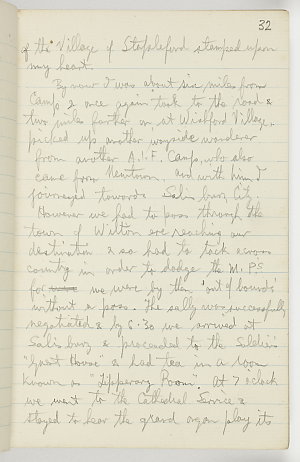 32
of the Village of Stapleford stamped upon
my heart.
By now I was about six miles from
Camp & once again took to the road &
two miles further on, at Wishford Village,
picked up another wayside wanderer
from another A.I.F. Camp, who also
came from Newtown, and with him I
journeyed towards Salisbury City.
However we had to pass through the
town of Wilton ere reaching our
destination & so had to tack across
country in order to dodge the M.P's
for we were by then 'out of bounds'
without a pass. The sally was successfully
negotiated & by 6.30 we arrived at
Salisbury & proceeded to the Soldiers
"Guest House" & had tea in a room
known as "Tipperary Room". At 7 oclock
we went to the Cathedral Service &
stayed to hear the grand organ play its